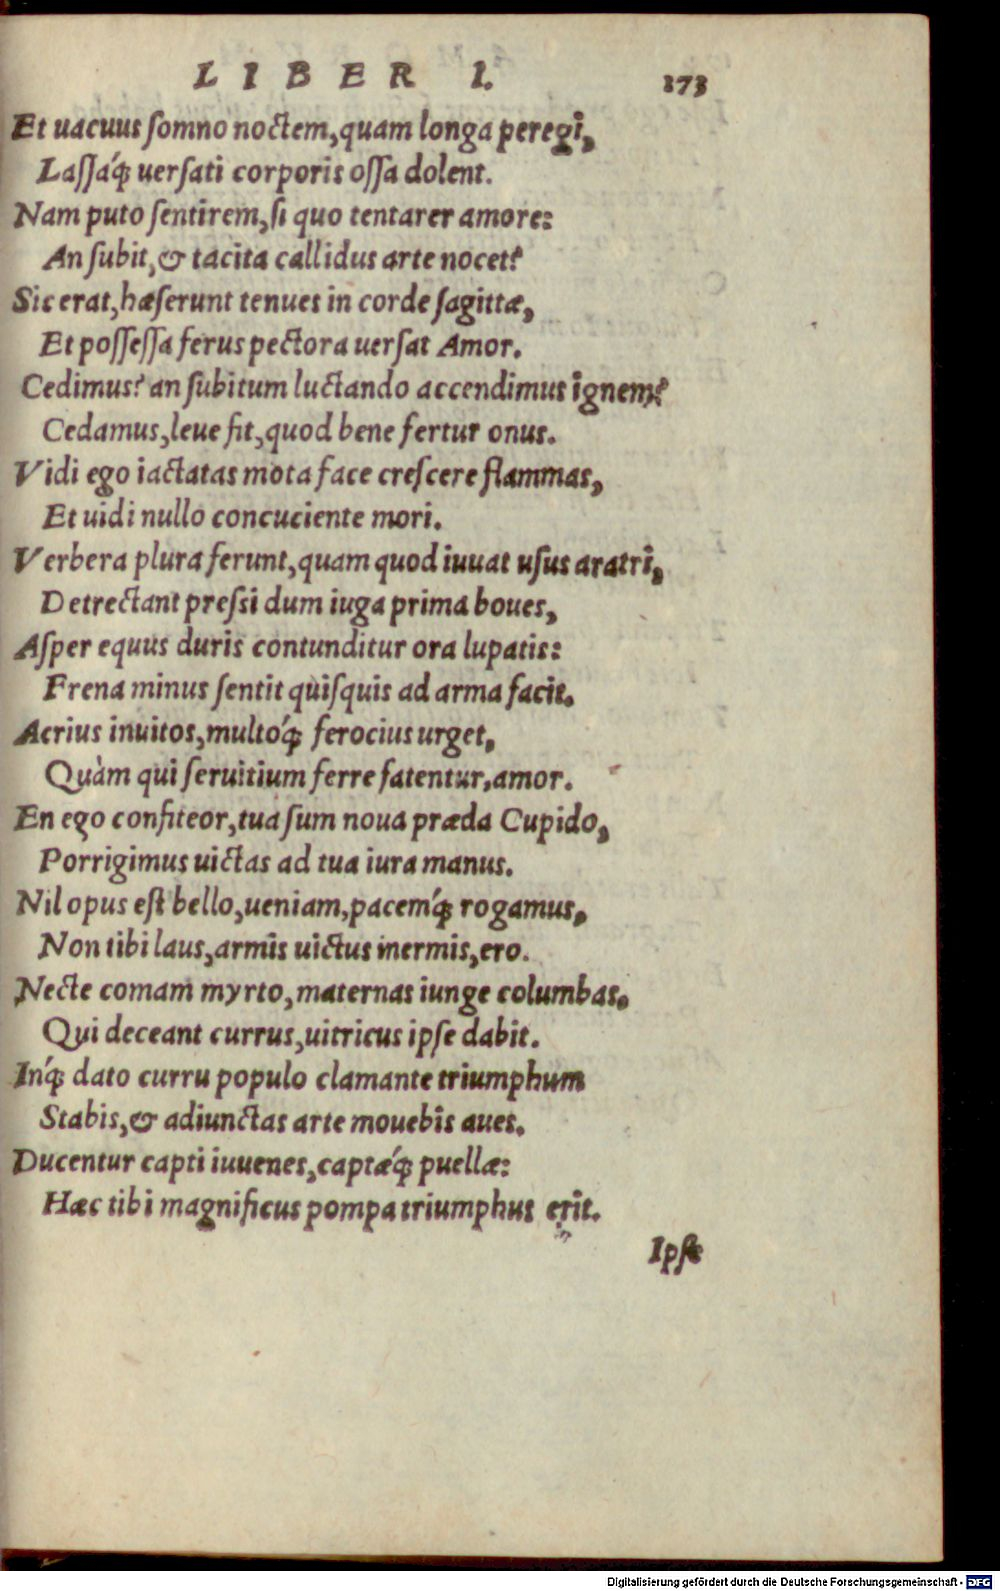 LIBER I. 173
Et uacuus somno noctem, quam longa peregi,
Lassaq́; uersati corporis ossa dolent.
Nam puto sentirem, si quo tentarer amore:
An subit, & tacita callidus arte nocet?
Sic erat, hæserunt tenues in corde sagittæ,
Et possessa ferus pectora uersat Amor.
Cedimus? an subitum luctando accendimus ignem?
Cedamus, leue fit, quod bene fertur onus.
Vidi ego iactatas mota face crescere flammas,
Et uidi nullo concuciente mori.
Verbera plura ferunt, quam quod iuuat usus aratri,
Detrectant pressi dum iuga prima boues,
Asper equus duris contunditur ora lupatis:
Frena minus sentit quisquis ad arma facit.
Acrius inuitos, multoq́; ferocius urget,
Quàm qui seruitium ferre fatentur, amor.
En ego confiteor, tua sum noua præda Cupido,
Porrigimus uictas ad tua iura manus.
Nil opus est bello, ueniam, pacemq́; rogamus,
Non tibi laus, armis uictus inermis, ero.
Necte comam myrto, maternas iunge columbas.
Qui deceant currus, uitricus ipse dabit.
Inq́; dato curru populo clamante triumphum
Stabis, & adiunctas arte mouebis aues.
Ducentur capti iuuenes, captæq́; puellæ:
Hæc tibi magnificus pompa triumphus erit.
Ipse
Digitalisierung gefördert durch die Deutsche Forschungsgemeinschaft - DFG